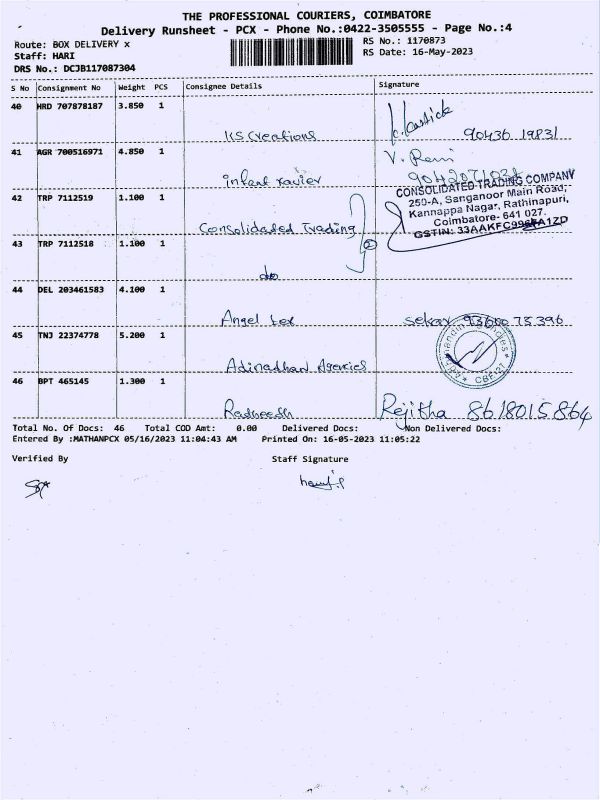 THE PROFESSIONAL COURIERS, COIMBATORE
Delivery Runsheet - PCX - Phone No.:0422-3505555 - Page No.:4
Route: BOX DELIVERY x
RS No.: 1170873
Staff: HARI
RS Date: 16-May-2023
DRS No.: DCJB117087304
S No Consignment No Weight PCS Consignee Details Signature
40 HRD 707878187 3.850 1
KS Creations K. Kartick 90436 19831
41 AGR 700516971 4.850 1
infant xavier V. Reni
42 TRP 7112519 1.100 1
Consolidaded Trading
CONSOLIDATED TRADING COMPANY
250-A, Sanganoor Main Road,
Kannappa Nagar, Rathinapuri,
Coimbatore- 641 027.
GSTIN: 33AAKFC99 A1ZD
43 TRP 7112518 1.100 1
do
2
44 DEL 203461583 4.100 1
Angel Lex sekar 93600 75396
45 TNJ 22374778 5.200 1
Adinadhan Agencies
CBE-27
46 BPT 465145 1.300 1
Radheesh Rejitha 8618015864
Total No. Of Docs: 46 Total COD Amt: 0.00 Delivered Docs: Non Delivered Docs:
Entered By :MATHANPCX 05/16/2023 11:04:43 AM Printed On: 16-05-2023 11:05:22
Verified By Staff Signature